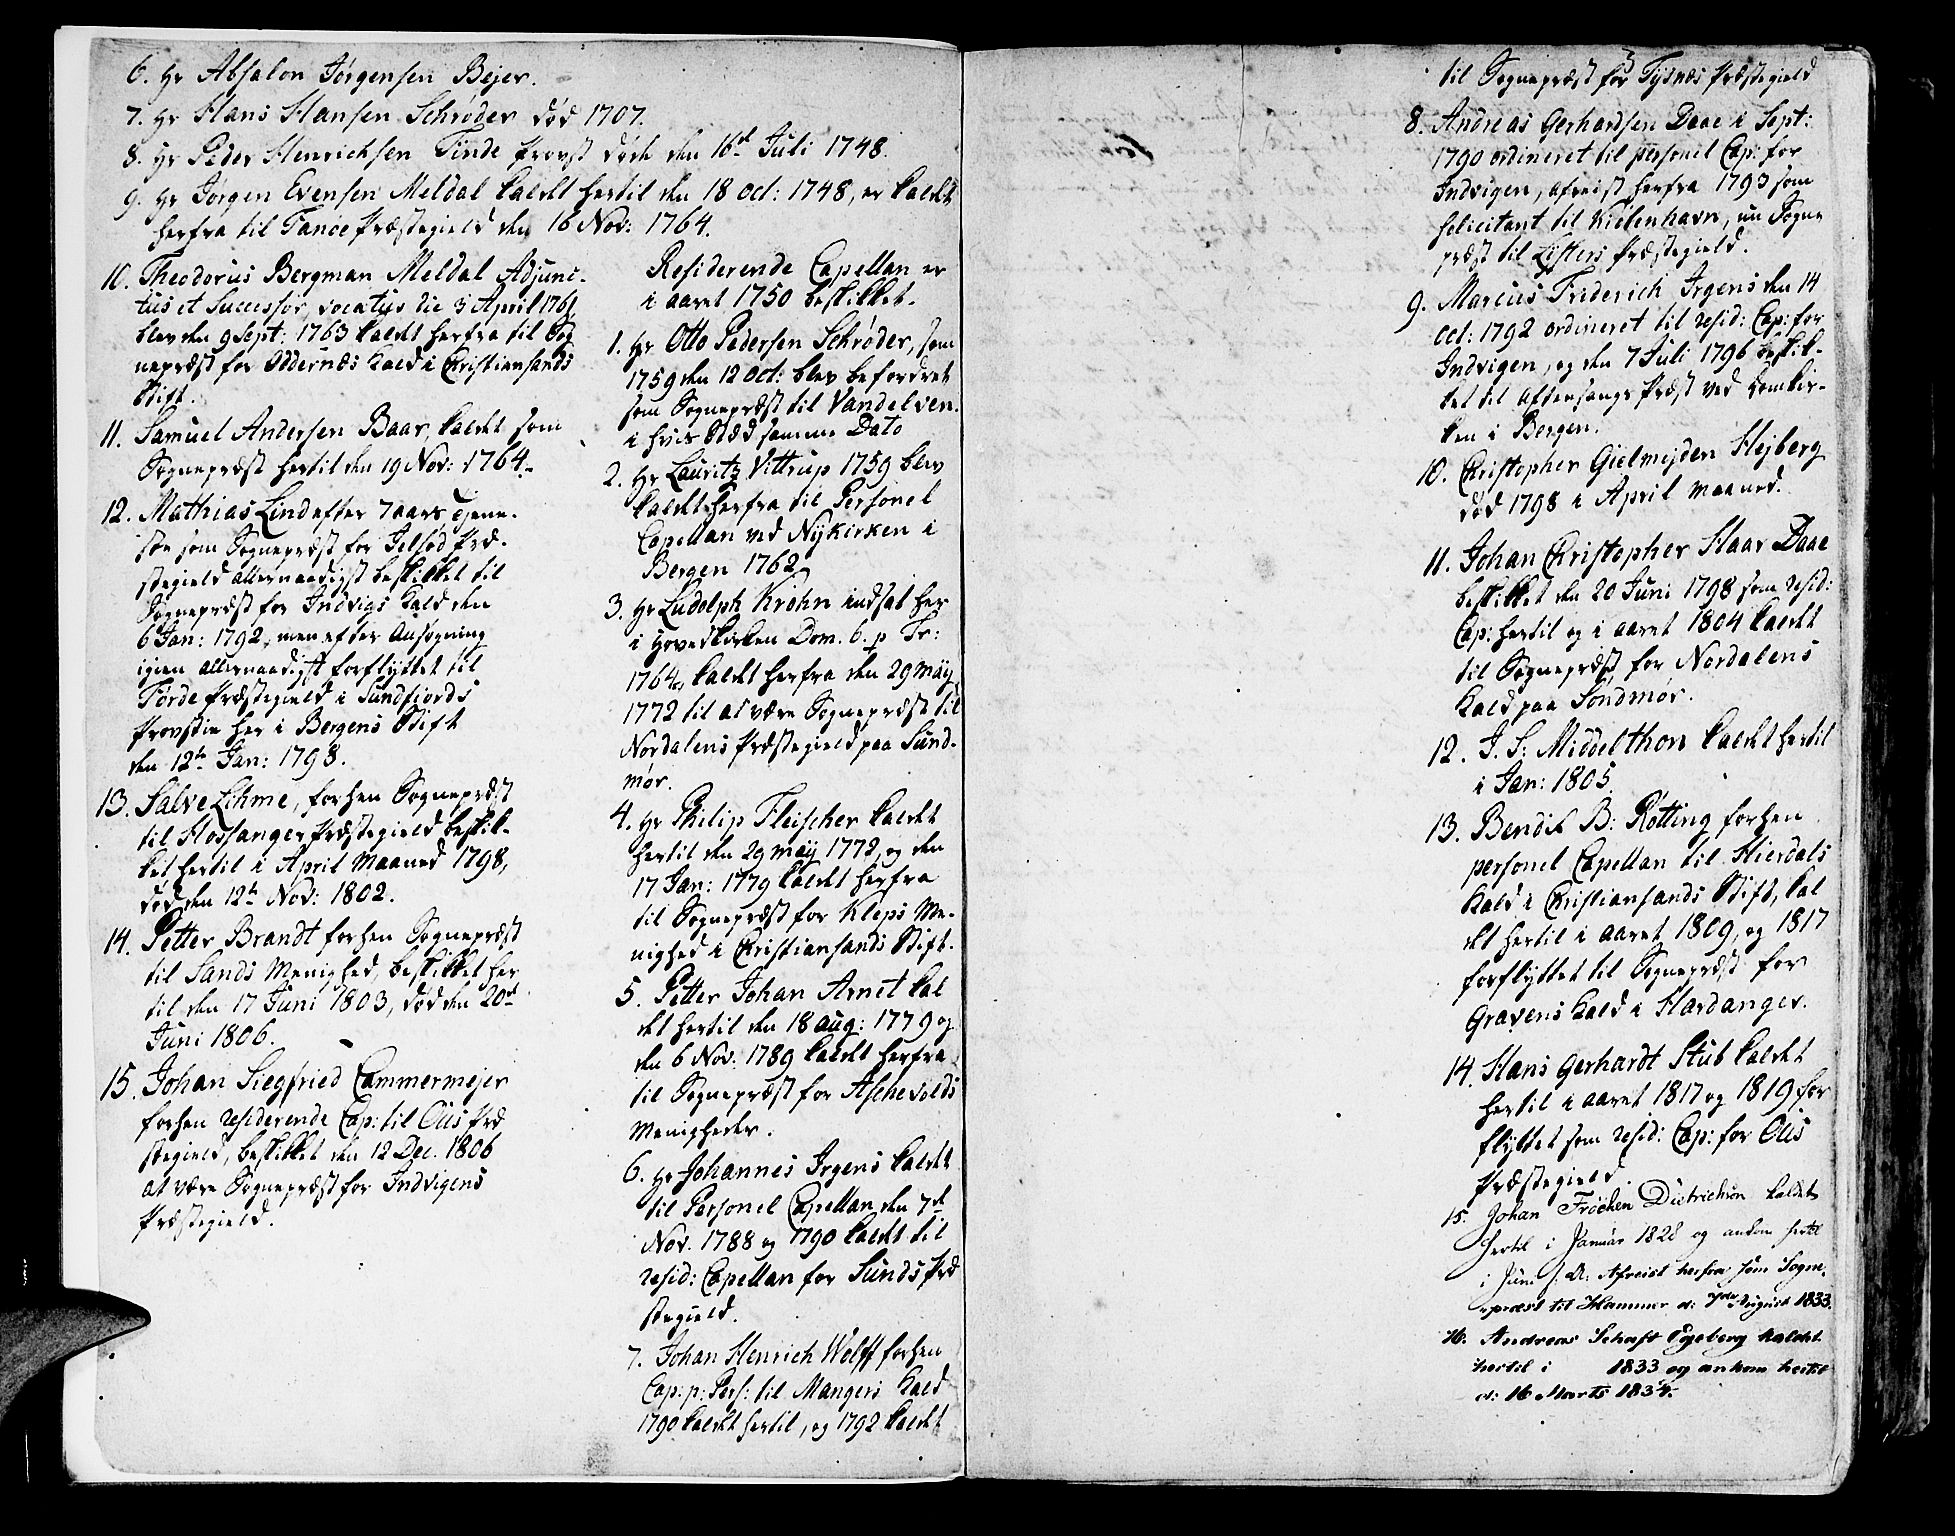 6. Hr Absalon Jørgensen Bejer.
7. Hr Hans Hansen Schrøder død 1707.
8. Hr Peder Henrichsen Finde Provst døde den 16d Juli 1748.
9. Hr Jørgen Evensen Meldal kaldt hertil den 18 Oct: 1748, er kaldt
herfra til Fanøe Præstegield den 16 Nov: 1764.
10. Theodorus Bergman Meldal Adjunc-
tus et Successor, vocatus die 3 April 1761,
blev den 9 Sept: 1763 kaldt herfra til Sog
nepræst for Oddernæs Kald i Christiansands
Stift.
11. Samuel Andersen Baar, kaldt som
Sognepræst hertil den 19 Nov: 1764.
12. Mathias Lind efter 7 aars Tiene-
ste som Sognepræst for Jelsøe Præ-
stegield allernaadigst beskikket til
Sognepræst for Indvigs Kald den
6 Jan: 1792, men efter Ansøgning
igien allernaadigst forflyttet til
Førde Præstegield i Sundfiords
Provstie her i Bergens Stift
den 12te Jan: 1798.
13. Salve Lihme, forhen Sognepræst
til Hossanger Præstegield beskik-
ket hertil i April Maaned 1798,
død den 12te Nov: 1802.
14. Petter Brandt forhen Sognepræst
til Sands Menighed, beskikket her
til den 17 Juni 1803, død den 20d
Juni 1806.
15. Johan Siegfried Cammermejer
forhen residerende Cap: til Ous Præ
stegield, beskikket den 12 Dec. 1806
at være Sognepræst for Indvigens
Præstegield.
Residerende Capellan er
i aaret 1750 beskikket.
1. Hr Otto Pedersen Schrøder, som
1759 den 12 Oct: blev befordret
som Sognepræst til Vandelven.
i hvis Stæd samme Dato
2. Hr Lauritz Vittrup 1759 blev
kaldt herfra til Personel
Capellan ved Nykirken i
Bergen 1762
3. Hr Ludolph Krohn indsat her
i Hovedkirken Dom. 6. p Tr:
1764, kaldt herfra den 29 Maÿ
1772 til at være Sognepræst til
Nordalens Præstegield paa Sund-
mør.
4. Hr Philip Fleischer kaldt
hertil den 29 Maÿ 1772, og den
17 Jan: 1779 kaldt herfra
til Sognepræst for Kleps Me-
nighed i Christiansands Stift.
5. Petter Johan Arnet kal
dt hertil den 18 Aug: 1779 og
den 6 Nov: 1789 kaldt herfra
til Sognepræst for Aschevolds
Menigheder.
6. Hr Johannes Irgens kaldt
til Personel Capellan den 7de
Nov. 1788 og 1790 kaldt til
resid: Capellan for Sunds Præ
stegield.
7. Johan Henrich Wolff forhen
Cap: p: Pers: til Mangers Kald
1790 kaldt hertil, og 1792 kaldt
til Sognepræst for Tysnæs Præstegield
8. Andreas Gerhardsen Daae i Sept:
1790 ordineret til personel Cap: for
Indvigen, afreist herfra 1793 som
solicitant til Kiöbenhavn, nu Sogne
præst til Lÿsters Præstegield.
9. Marcus Friderich Irgens den 14
Oct: 1792 ordineret til resid: Cap: for
Indvigen, og den 7 Juli 1796 beskik-
ket til Aftensangs Præst ved Domkir-
ken i Bergen.
10. Christopher Gielmejden Hejberg
død 1798 i April Maaned.
11. Johan Christopher Haar Daae
beskikket den 20 Juni 1798 som resid:
Cap: hertil og i aaret 1804 kaldt
til Sognepræst for Nordalens
Kald paa Söndmör.
12. J. S: Middelthon kaldt hertil
i Jan: 1805.
13. Bendix B: Røtting forhen
personel Capellan til Hierdals
Kald i Christiansands Stift, kal
dt hertil i aaret 1809, og 1817
forflyttet til Sognepræst for
Gravens Kald i Hardanger.
14. Hans Gerhardt Stub kaldt
hertil i aaret 1817 og 1819 for
flyttet som resid: Cap: for Ous
Præstegield.
15. Johan Fröchen Dietrichson kaldet
hertil i Januar 1828 og ankom hertil
i Juni s. A: Afreist herfra som Sogne-
præst til Hammer d: 7de August 1833.
16. Andreas Schaft Egeberg kaldet
hertil i 1833 og ankom hertil
d: 16 Marts 1834.